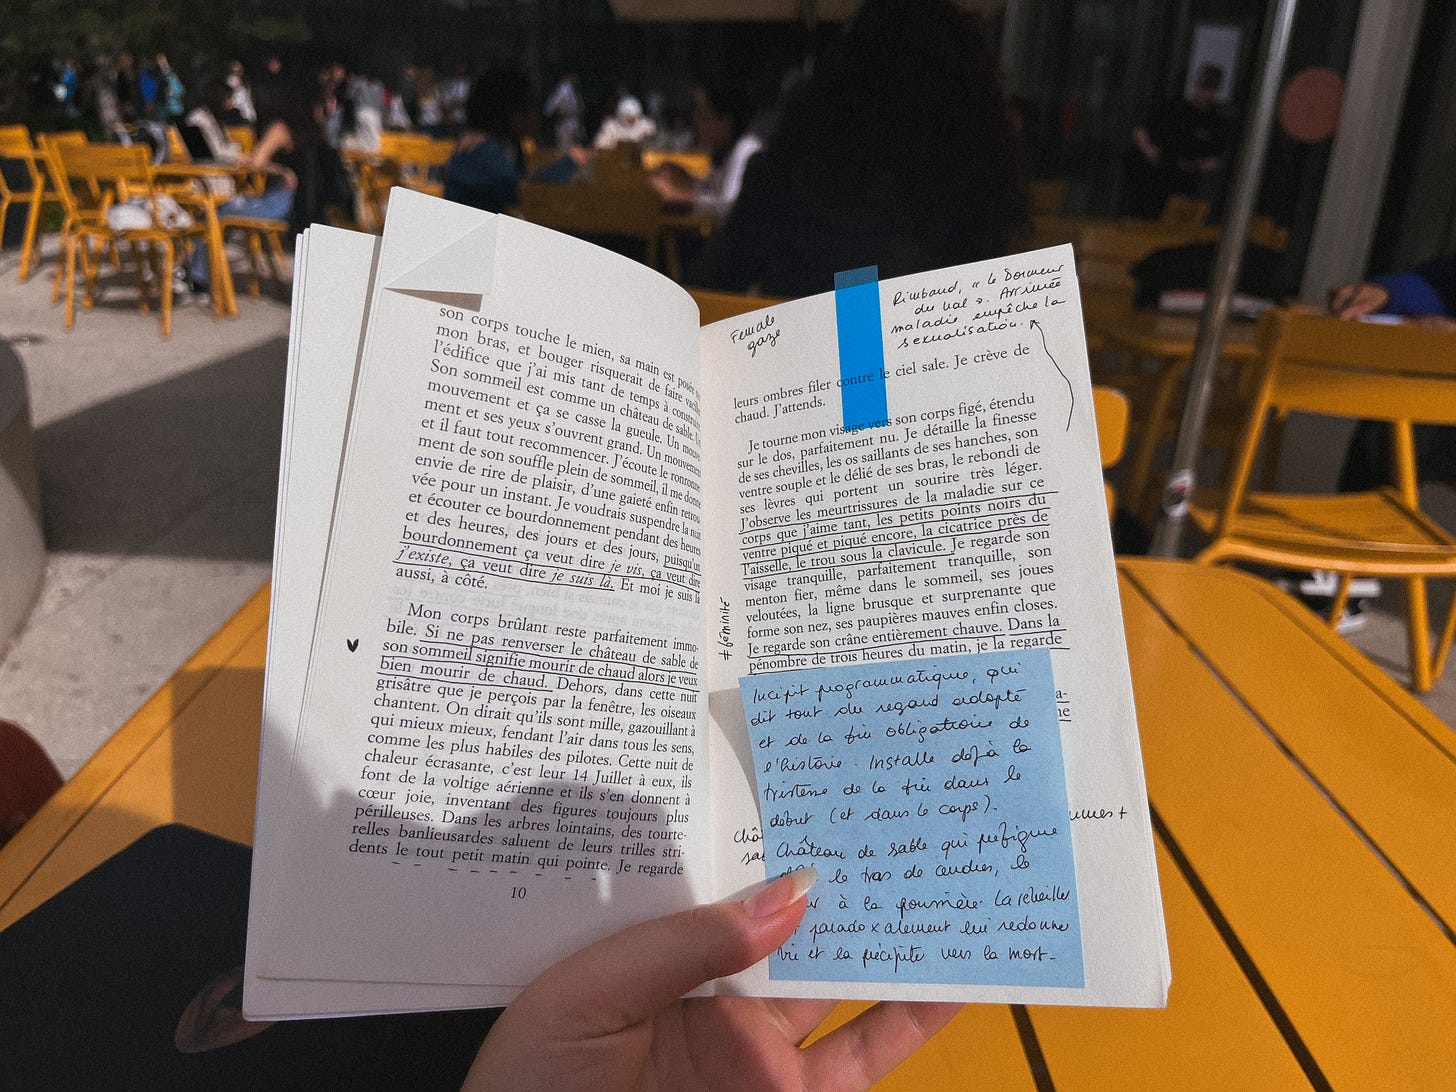 son corps touche le mien, sa main est posée
mon bras, et bouger risquerait de faire
l'édifice que j'ai mis tant de temps à
Son sommeil est comme un château de sable.
mouvement et ça se casse la gueule. Un
ment et ses yeux s'ouvrent grand. Un mouvement
et il faut tout recommencer. J'écoute le
ment de son souffle plein de sommeil, il me donne
envie de rire de plaisir, d'une gaieté enfin
vée pour un instant. Je voudrais suspendre la nuit
et écouter ce bourdonnement pendant des heures
et des heures, des jours et des jours, puisqu'un
bourdonnement ça veut dire je vis, ça veut dire
j'existe, ça veut dire je suis là. Et moi je suis là
aussi, à côté.
Mon corps brûlant reste parfaitement immo-
bile. Si ne pas renverser le château de sable de
son sommeil signifie mourir de chaud alors je veux
bien mourir de chaud. Dehors, dans cette nuit
grisâtre que je perçois par la fenêtre, les oiseaux
chantent. On dirait qu'ils sont mille, gazouillant à
qui mieux mieux, fendant l'air dans tous les sens,
comme les plus habiles des pilotes. Cette nuit de
chaleur écrasante, c'est leur 14 Juillet à eux, ils
font de la voltige aérienne et ils s'en donnent à
cœur joie, inventant des figures toujours plus
périlleuses. Dans les arbres lointains, des tourte-
relles banlieusardes saluent de leurs trilles stri-
dents le tout petit matin qui pointe. Je regarde
10
Female
gaze
Rimbaud, « le Dormeur
du val ». Arrivée
maladie empêche la
sexualisation.
leurs ombres filer contre le ciel sale. Je crève de
chaud. J'attends.
Je tourne mon visage vers son corps figé, étendu
sur le dos, parfaitement nu. Je détaille la finesse
de ses chevilles, les os saillants de ses hanches, son
ventre souple et le délié de ses bras, le rebondi de
ses lèvres qui portent un sourire très léger.
J'observe les meurtrissures de la maladie sur ce
corps que j'aime tant, les petits points noirs du
ventre piqué et piqué encore, la cicatrice près de
l'aisselle, le trou sous la clavicule. Je regarde son
visage tranquille, parfaitement tranquille, son
menton fier, même dans le sommeil, ses joues
veloutées, la ligne brusque et surprenante que
forme son nez, ses paupières mauves enfin closes.
Je regarde son crâne entièrement chauve. Dans la
pénombre de trois heures du matin, je la regarde
#féminité
Incipit programmatique, qui
dit tout du regard adopté
et de la fin obligatoire de
l'histoire. Installe déjà la
tristesse de la fin dans le
début (et dans le corps).
Château de sable qui préfigure
le tas de cendres, le
à la poussière. La réveiller
paradoxalement lui redonne
vie et la précipite vers la mort.